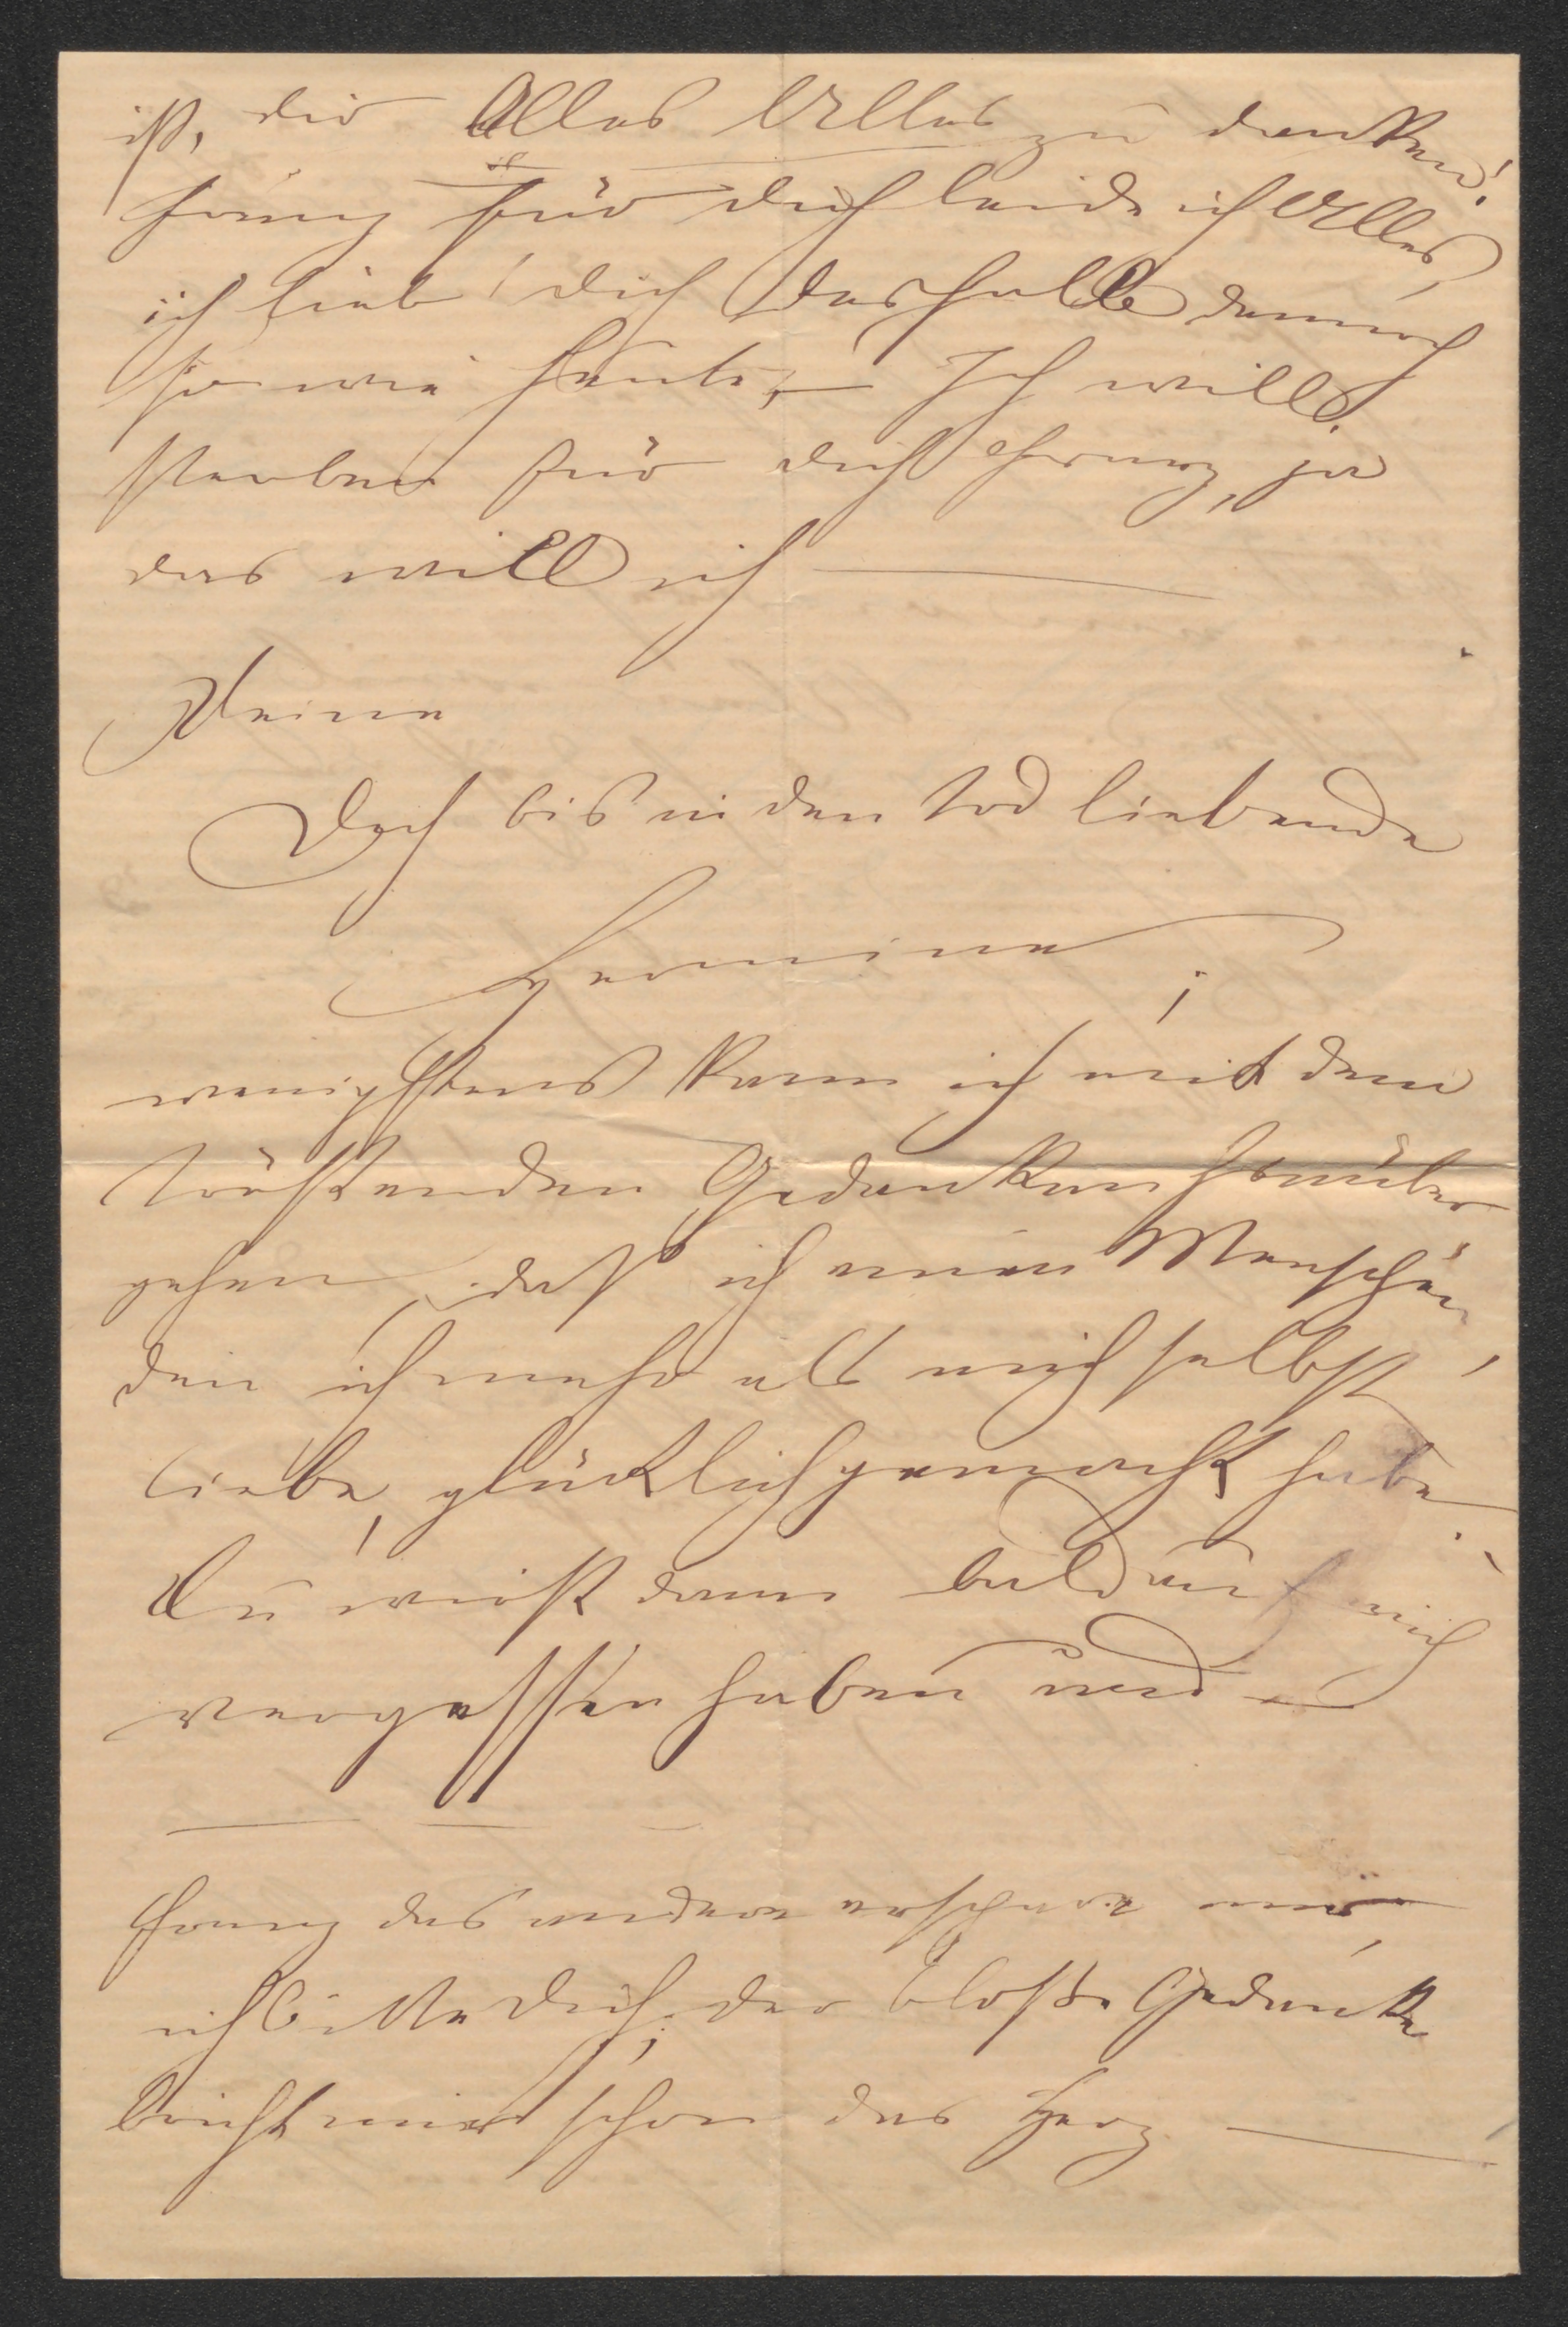 ist, dir Alles Alles zu danken!
Franz für dich leide ich Alles,
ich liebe dich deshalb dennoch
so wie heute, – Ich will
sterben für dich Franz, ja
das will ich —
Deine
Dich bis in den Tod liebende
Hermine
wenigstens kann ich mit dem
tröstenden Gedanken hinüber
gehen, daß ich einen Menschen
den ich mehr als mich selbst
liebe, glücklich gemacht habe
Du wirst dann bald auf mich
vergessen haben und –
— — —
Franz das andere erspare mir,
ich bitte dich; der bloße Gedanke
bricht mir schon das Herz —